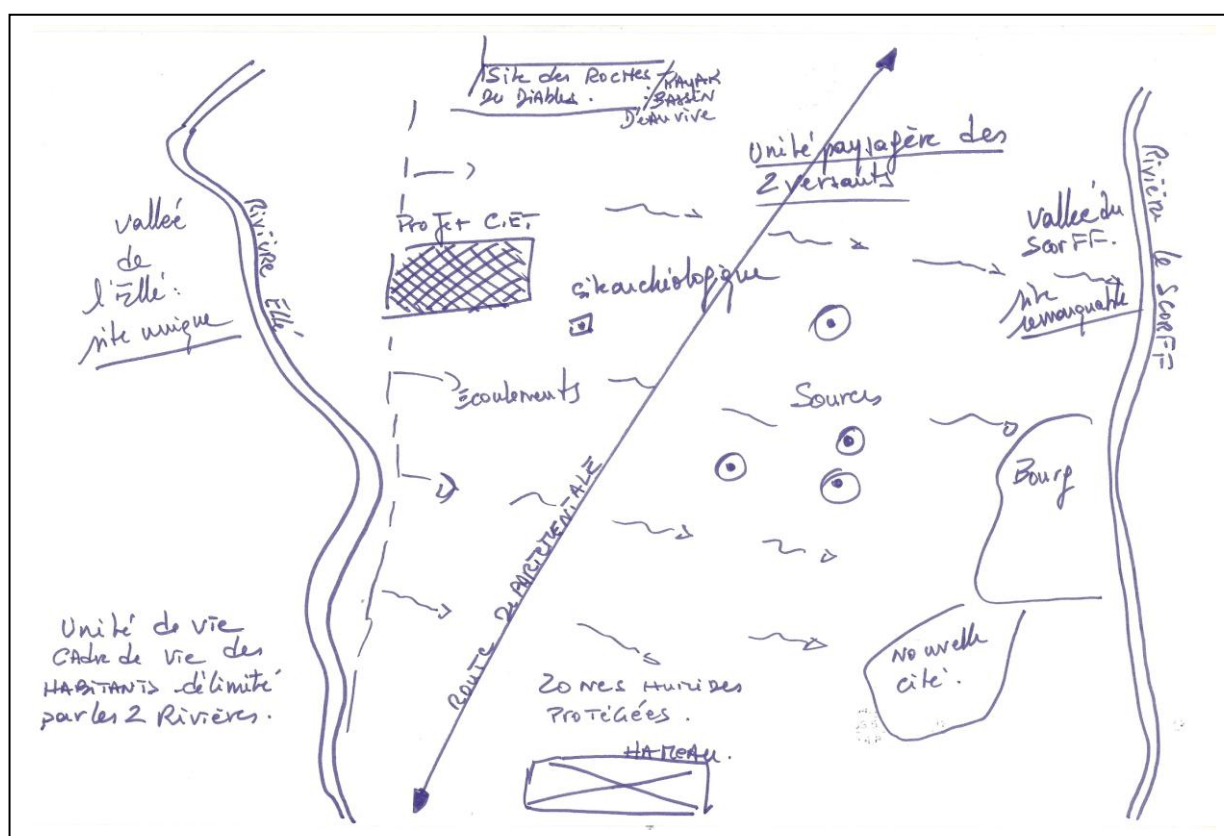 Site des ROCHES
Du DiAbles.
KAYAK
BASSIN
D'EAU VIVE
Unité paysagère des
2 versants
vallée
de
l'Ellé :
site unique
RiVière Ellé
ProJet C.E.T
site archéologique
vallée du
ScorFF.
site
remarquable
Rivière le SCORFF
Écoulements
Sources
Bourg
ROUTE DéPARTEMENTALE
Unité de vie
CAdre de vie des
HABITANTS délimité
par les 2 Rivières.
ZoNes Humides
ProTéGées.
HAMeAu.
Nouvelle
cité.